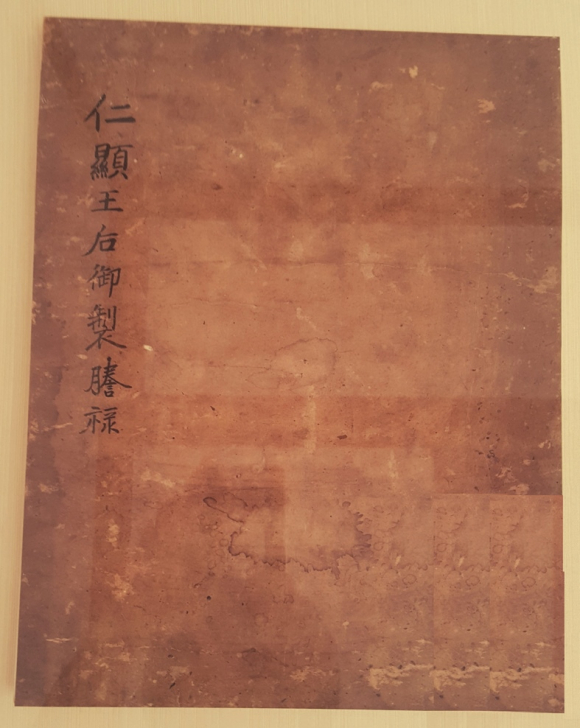 仁顯王后御製謄祿